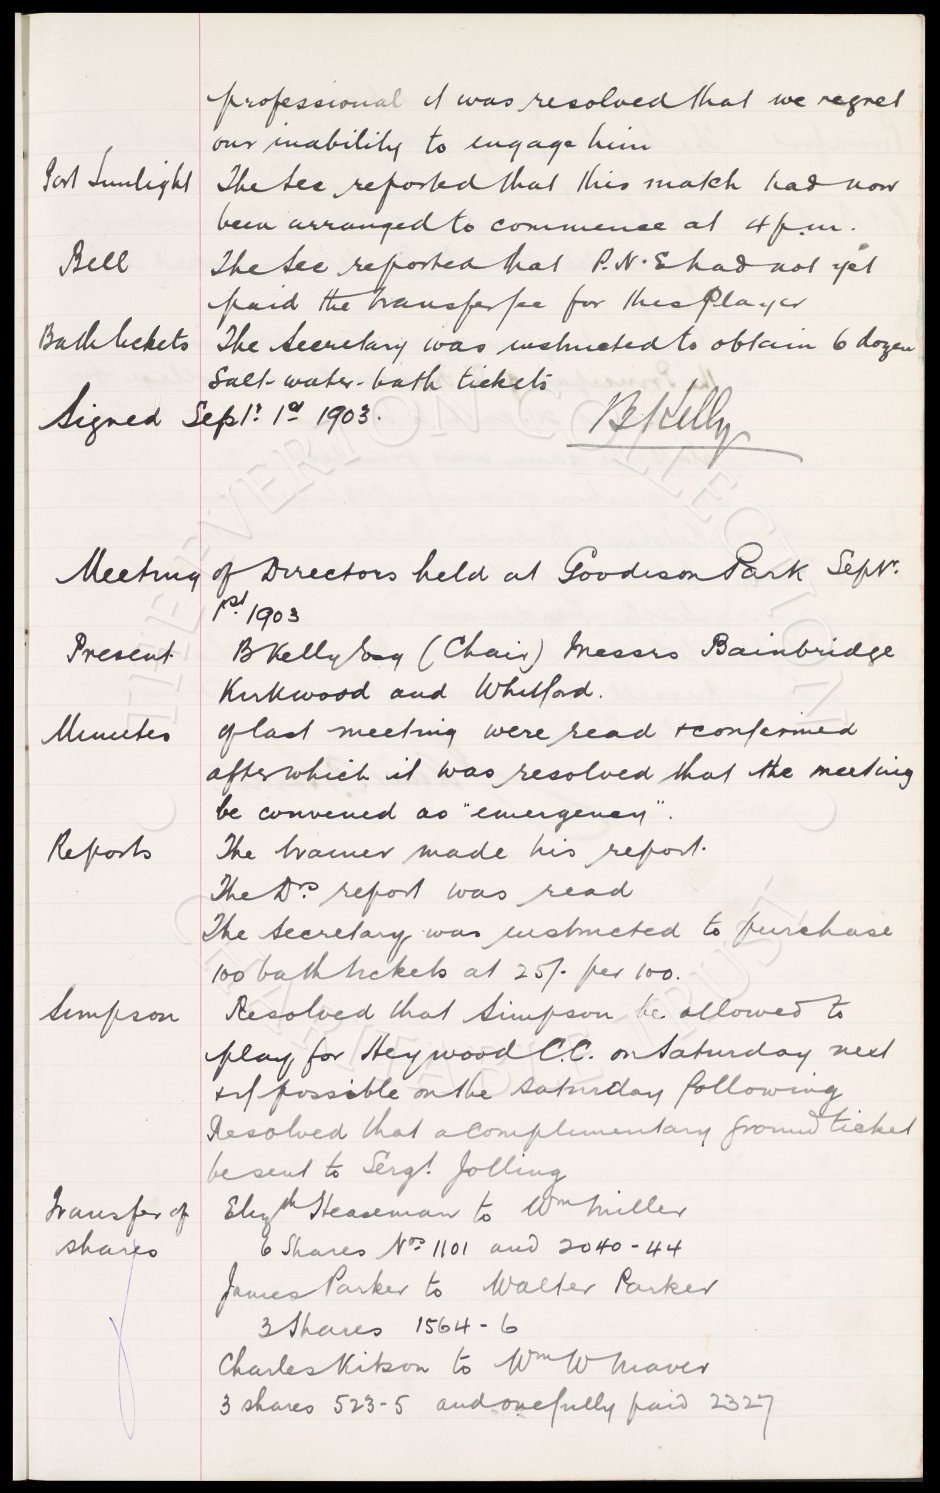 professional it was resolved that we regret
our inability to engage him
Port Sunlight The Sec reported that this match had now
been arranged to commence at 4 p.m.
Bell The Sec reported that P.N.E had not yet
paid the transfer fee for this Player
Bath tickets The Secretary was instructed to obtain 6 dozen
Salt-water-bath tickets
Signed Sept. 1st 1903. B Kelly
Meeting of Directors held at Goodison Park Septr.
1st 1903
Present B Kelly Esq (Chair) Messrs Bainbridge
Kirkwood and Whitford.
Minutes of last meeting were read & confirmed
after which it was resolved that the meeting
be convened as "emergency".
Reports The trainer made his report.
The Drs report was read
The Secretary was instructed to purchase
100 bath tickets at 25/- per 100.
Simpson Resolved that Simpson be allowed to
play for Heywood C.C. on Saturday next
& if possible on the Saturday following
Resolved that a complimentary ground ticket
be sent to Sergt. Jolling
Transfer of Elizth Heaseman to Wm Miller
shares 6 Shares Nos 1101 and 2040-44
James Parker to Walter Parker
3 Shares 1564-6
Charles Kitson to Wm W Maver
3 shares 523-5 and one fully paid 2327
THE EVERTON COLLECTION
CHARITABLE TRUST